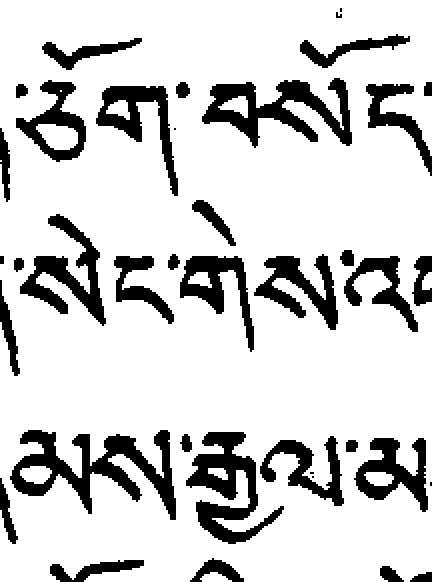 ་ཙོག་བསོད
་སེང་གེས་འ
མས་རྒྱལ་མ